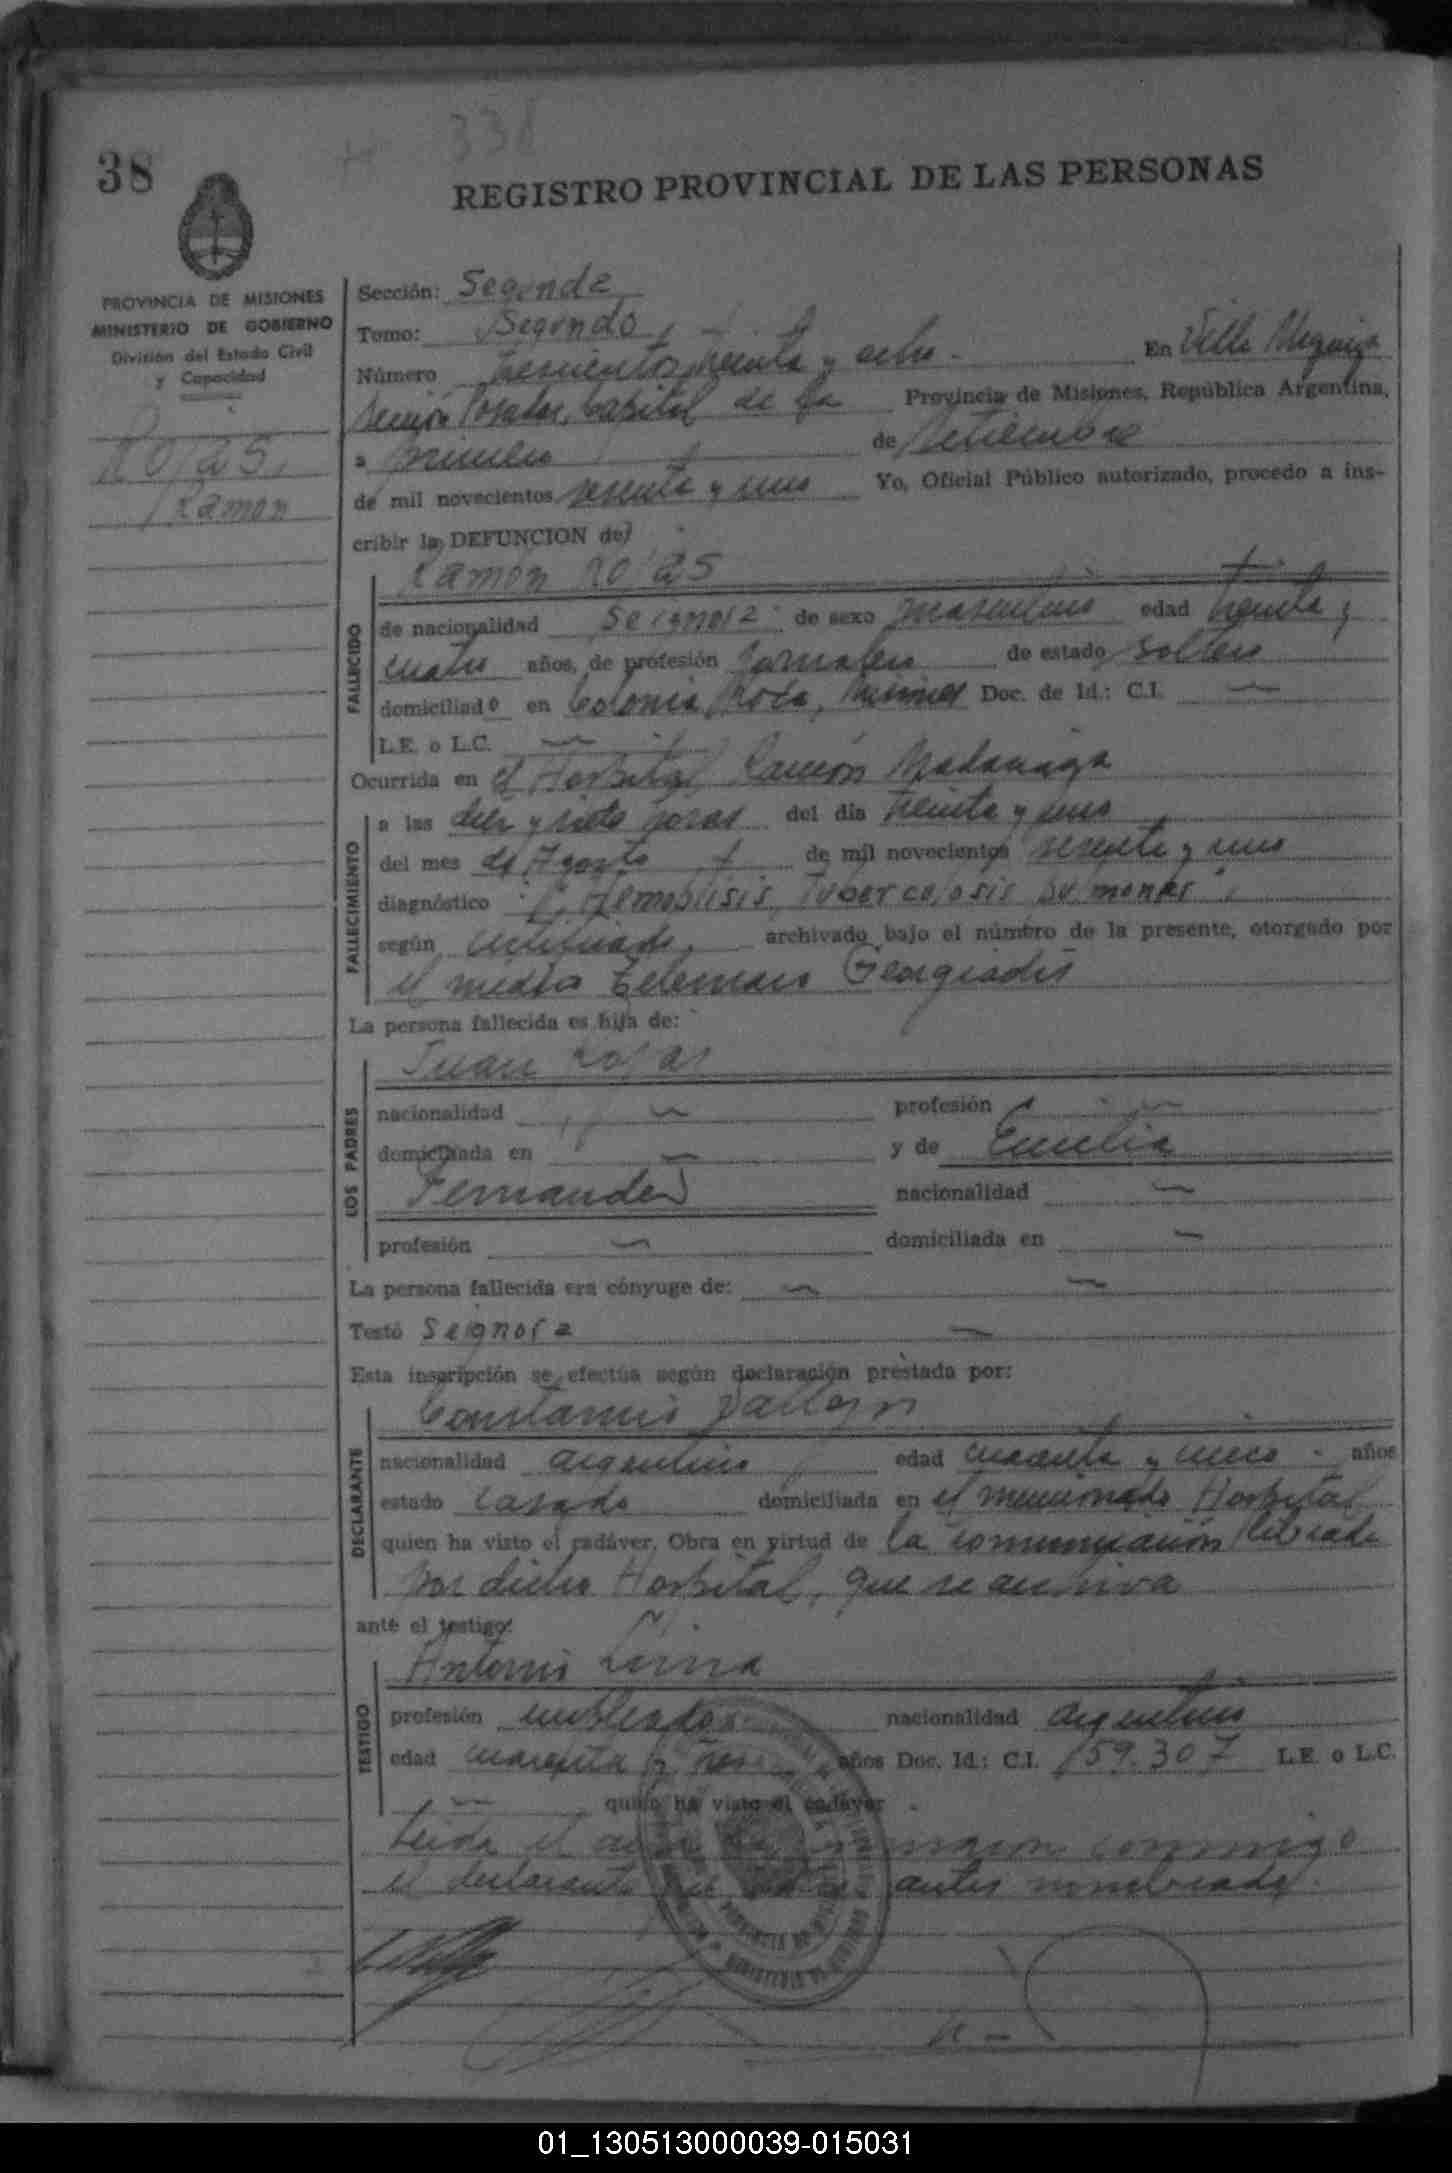 38
338
REGISTRO PROVINCIAL DE LAS PERSONAS
PROVINCIA DE MISIONES
MINISTERIO DE GOBIERNO
División del Estado Civil
y Capacidad
Rojas,
Ramon
Sección: Segunda
Tomo: Segundo
Número trescientos treinta y ocho. En Villa Urquiza
Sección Posadas, Capital de la Provincia de Misiones, República Argentina,
a primero de Setiembre
de mil novecientos sesenta y uno Yo, Oficial Público autorizado, procedo a ins-
cribir la DEFUNCION de
Ramon Rojas
FALLECIDO
de nacionalidad se ignora de sexo masculino edad treinta y
cuatro años, de profesión Jornalero de estado soltero
domiciliado en Colonia Roca, Misiones Doc. de Id.: C.I. —
L.E. o L.C. —
Ocurrida en el Hospital Ramón Madariaga
FALLECIMIENTO
a las diez y siete horas del día treinta y uno
del mes de Agosto de mil novecientos sesenta y uno
diagnóstico "Hemoptisis, Tuberculosis Pulmonar",
según certificado, archivado bajo el número de la presente, otorgado por
el médico Telemaco Georgiadis
La persona fallecida es hija de:
Juan Rojas
LOS PADRES
nacionalidad — profesión —
domiciliada en — y de Emilia
Fernandez nacionalidad —
profesión — domiciliada en —
La persona fallecida era cónyuge de: — —
Testó se ignora —
Esta inscripción se efectúa según declaración prestada por:
Constancio Vallejos
DECLARANTE
nacionalidad argentino edad cuarenta y cinco años
estado casado domiciliada en el mencionado Hospital
quien ha visto el cadáver. Obra en virtud de la comunicación librada
por dicho Hospital, que se archiva
ante el testigo:
Antonio
TESTIGO
profesión empleado nacionalidad argentino
edad cuarenta y años Doc. Id.: C.I. 159.307 L.E. o L.C.
— quien ha visto el cadáver
Leida el acta conmigo
el declarante antes nombrados.
01_130513000039-015031